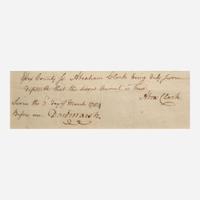 County Ss Abraham Clark being duly sworn
deposeth that the above account is true
Abra Clark
Sworn the 3 day of March
Before me